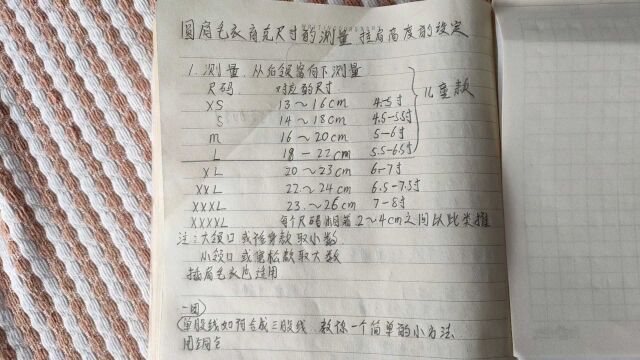 圆肩毛衣育克尺寸的测量 挂肩高度的设定
1. 测量. 从后领窝向下测量
尺码 对应的尺寸
XS 13~16cm 4-5寸
S 14~18cm 4.5-5.5寸
m 16~20cm 5-6寸
L 18-22cm 5.5-6.5寸
儿童款
XL 20~23cm 6-7寸
XXL 22~24cm 6.5-7.5寸
XXXL 23.~26cm 7-8寸
XXXXL 每个尺码 2~4cm之间以此类推
注:大领口或修身款取小数
小领口或宽松款取大数
插肩毛衣也适用
一团
单股线如何合成三股线 教你一个简单的小方法